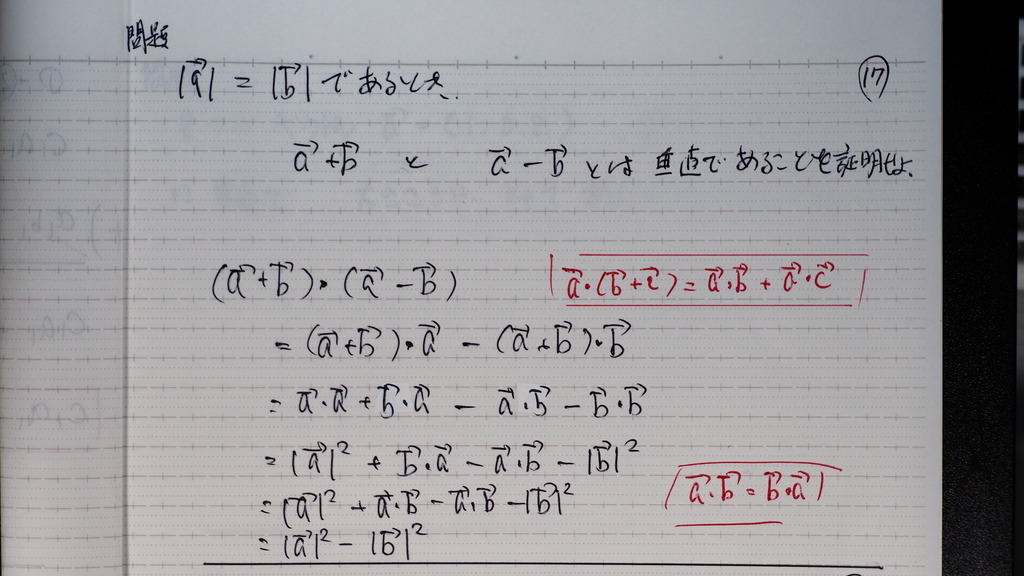 問題
|a⃗| = |b⃗| であるとき、 ⑰
a⃗ + b⃗ と a⃗ − b⃗ とは 垂直であることを証明せよ。
(a⃗ + b⃗)・(a⃗ − b⃗)
a⃗・(b⃗ + c⃗) = a⃗・b⃗ + a⃗・c⃗
= (a⃗ + b⃗)・a⃗ − (a⃗ + b⃗)・b⃗
= a⃗・a⃗ + b⃗・a⃗ − a⃗・b⃗ − b⃗・b⃗
= |a⃗|² + b⃗・a⃗ − a⃗・b⃗ − |b⃗|²
a⃗・b⃗ = b⃗・a⃗
= |a⃗|² + a⃗・b⃗ − a⃗・b⃗ − |b⃗|²
= |a⃗|² − |b⃗|²